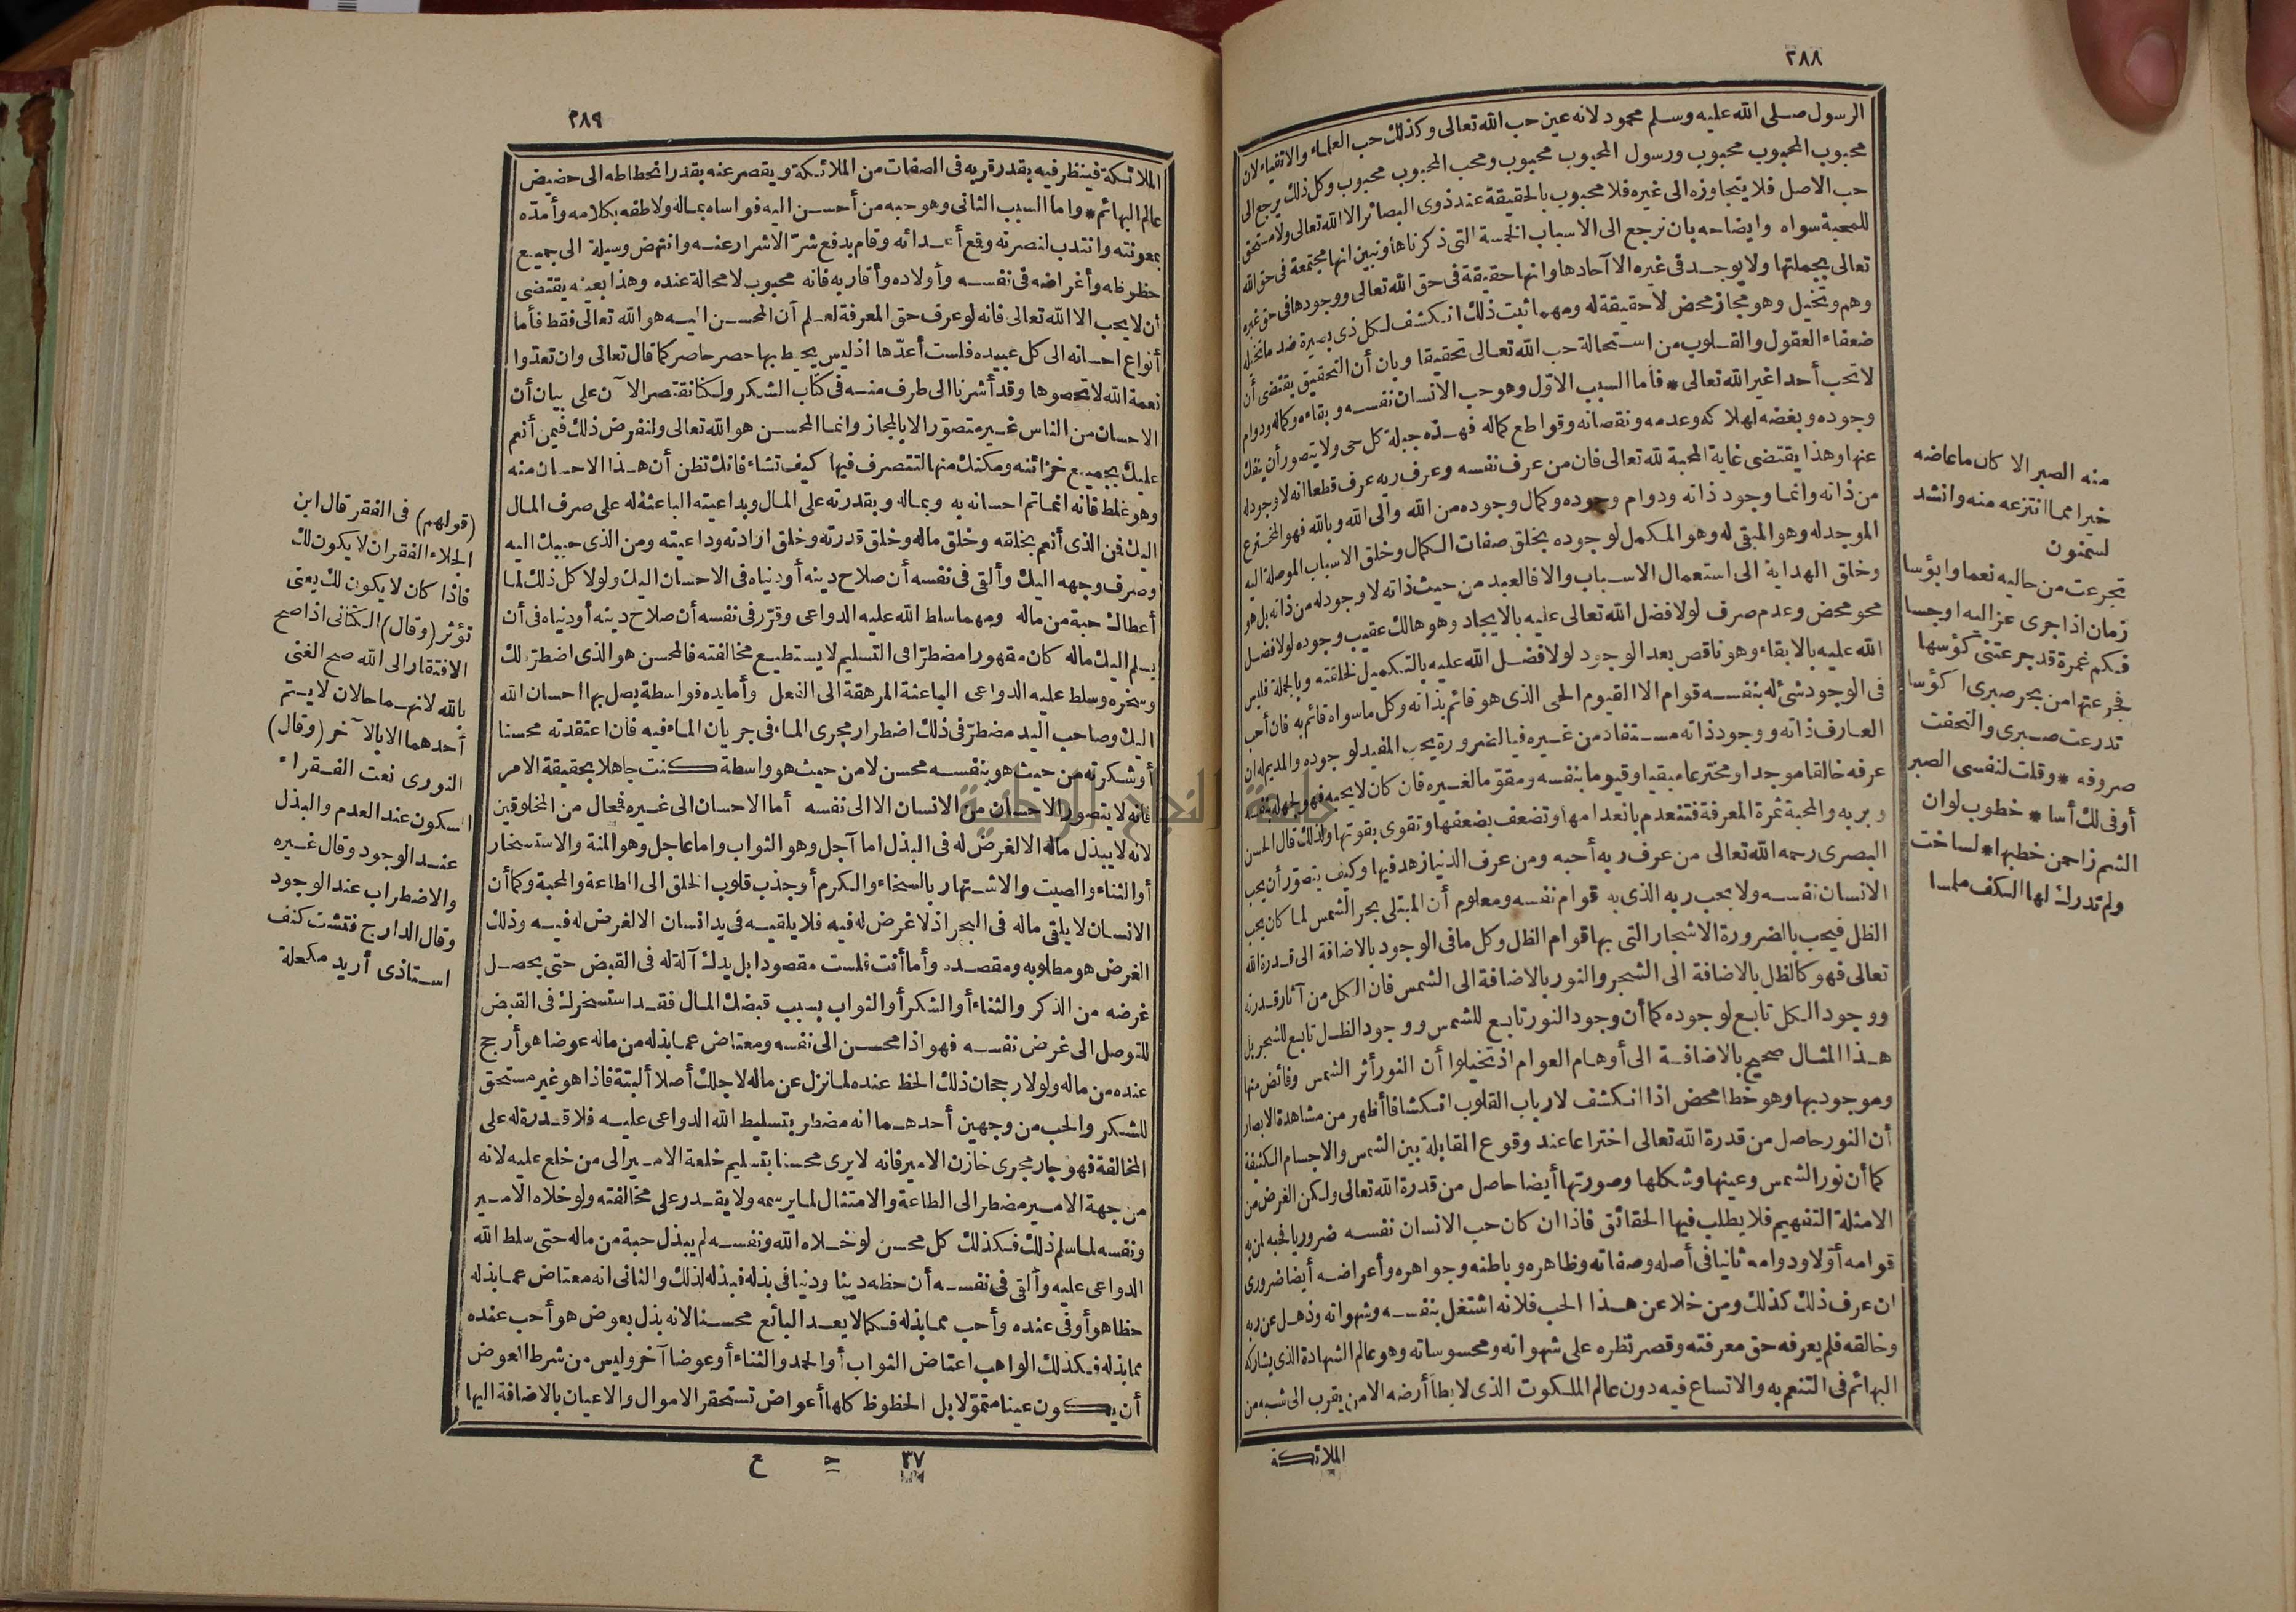 ٢٨٨
الرسول صلى الله عليه وسلم محمود لانه عين حب الله تعالى وكذلك حب العلماء والاتقياء لان
محبوب المحبوب محبوب ورسول المحبوب محبوب ومحب المحبوب محبوب وكل ذلك يرجع الى
حب الاصل فلا يتجاوزه الى غيره فلا محبوب بالحقيقة عند ذوى البصائر الا الله تعالى ولا مستحق
للمحبة سواه وايضاحه بان نرجع الى الاسباب الخمسة التى ذكرناها ونبين انها مجتمعة فى حق الله
تعالى بجملتها ولا يوجد فى غيره الا آحادها وانها حقيقة فى حق الله تعالى ووجودها فى حق غيره
وهم وتخيل وهو مجاز محض لا حقيقة له ومهما ثبت ذلك انكشف لكل ذى بصيرة ضد ما تخيله
ضعفاء العقول والقلوب من استحالة حب الله تعالى تحقيقا وبان أن التحقيق يقتضى أن
لا تحب أحدا غير الله تعالى * فأما السبب الاوّل وهو حب الانسان نفسه وبقاءه وكماله ودوام
وجوده وبغضه لهلاكه وعدمه ونقصانه وقواطع كماله فهذه جبلة كل حى ولا يتصور أن ينفك
عنها وهذا يقتضى غاية المحبة لله تعالى فان من عرف نفسه وعرف ربه عرف قطعا انه لا وجود له
من ذاته وانما وجود ذاته ودوام وجوده وكمال وجوده من الله والى الله وبالله فهو المخترع
الموجد له وهو المبقى له وهو المكمل لوجوده بخلق صفات الكمال وخلق الاسباب الموصلة اليه
وخلق الهداية الى استعمال الاسباب والا فالعبد من حيث ذاته لا وجود له من ذاته بل هو
محو محض وعدم صرف لولا فضل الله تعالى عليه بالايجاد وهو هالك عقيب وجوده لولا فضل
الله عليه بالابقاء وهو ناقص بعد الوجود لولا فضل الله عليه بالتكميل لخلقته وبالجملة فليس
فى الوجود شئ له بنفسه قوام الا القيوم الحى الذى هو قائم بذاته وكل ما سواه قائم به فان أحب
العارف ذاته ووجود ذاته مستفاد من غيره فبالضرورة يحب المفيد لوجوده والمديم له ان
عرفه خالقا موجدا ومخترعا مبقيا وقيوما بنفسه ومقوما لغيره فان كان لا يحبه فهو لجهله بنفسه
وبربه والمحبة ثمرة المعرفة فتنعدم بانعدامها وتضعف بضعفها وتقوى بقوتها ولذلك قال الحسن
البصرى رحمه الله تعالى من عرف ربه أحبه ومن عرف الدنيا زهد فيها وكيف يتصوّر أن يحب
الانسان نفسه ولا يحب ربه الذى به قوام نفسه ومعلوم أن المبتلى بحر الشمس لما كان يحب
الظل فيحب بالضرورة الاشجار التى بها قوام الظل وكل ما فى الوجود بالاضافة الى قدرة الله
تعالى فهو كالظل بالاضافة الى الشجر والنور بالاضافة الى الشمس فان الكل من آثار قدرته
ووجود الكل تابع لوجوده كما أن وجود النور تابع للشمس ووجود الظل تابع للشجر بل
هذا المثال صحيح بالاضافة الى أوهام العوام اذ تخيلوا أن النور أثر الشمس وفائض منها
وموجود بها وهو خطا محض اذا انكشف لارباب القلوب انكشافا أظهر من مشاهدة الابصار
أن النور حاصل من قدرة الله تعالى اختراعا عند وقوع المقابلة بين الشمس والاجسام الكثيفة
كما أن نور الشمس وعينها وشكلها وصورتها أيضا حاصل من قدرة الله تعالى ولكن الغرض من
الامثلة التفهيم فلا يطلب فيها الحقائق فاذا ان كان حب الانسان نفسه ضروريا فحبه لمن به
قوامه أوّلا ودوامه ثانيا فى أصله وصفاته وظاهره وباطنه وجواهره وأعراضه أيضا ضرورى
ان عرف ذلك كذلك ومن خلا عن هذا الحب فلانه اشتغل بنفسه وشهواته وذهل عن ربه
وخالقه فلم يعرفه حق معرفته وقصر نظره على شهواته ومحسوساته وهو عالم الشهادة الذى يشاركه
البهائم فى التنعم به والاتساع فيه دون عالم الملكوت الذى لا يطأ أرضه الا من يقرب الى شبه من
الملائكة
منه الصبر الا كان ما عاضه
خيرا مما انتزعه منه وانشد
لسمنون
تجرعت من حاليه نعما وابؤسا
زمان اذا جرى عزاليه اوحسا
فكم غمرة قد جرعتنى كؤسها
فجرعتها من بحر صبرى اكؤسا
تدرعت صبرى والتحفت
صروفه * وقلت لنفسى الصبر
أوفى لك أسا * خطوب لوان
الشم زاحمن خطبها * لساخت
ولم تدرك لها الكف ملسا
٢٨٩
الملائكة فينظر فيه بقدر قربه فى الصفات من الملائكة ويقصر عنه بقدر انحطاطه الى حضيض
عالم البهائم * واما السبب الثانى وهو حبه من أحسن اليه فواساه بماله ولاطفه بكلامه وأمدّه
بمعونته وانتدب لنصرته وقمع أعدائه وقام بدفع شرّ الاشرار عنه وانتهض وسيلة الى جميع
حظوظه وأغراضه فى نفسه وأولاده وأقاربه فانه محبوب لا محالة عنده وهذا بعينه يقتضى
أن لا يحب الا الله تعالى فانه لو عرف حق المعرفة لعلم أن المحسن اليه هو الله تعالى فقط فأما
أنواع احسانه الى كل عبيده فلست أعدّها اذ ليس يحيط بها حصر حاصر كما قال تعالى وان تعدّوا
نعمة الله لا تحصوها وقد أشرنا الى طرف منه فى كتاب الشكر ولكنا نقتصر الآن على بيان أن
الاحسان من الناس غير متصوّر الا بالمجاز وانما المحسن هو الله تعالى ولنفرض ذلك فيمن أنعم
عليك بجميع خزائنه ومكنك منها لتتصرف فيها كيف تشاء فانك تظن أن هذا الاحسان منه
وهو غلط فانه انما تم احسانه به وبماله وبقدرته على المال وبداعيته الباعثة له على صرف المال
اليك فمن الذى أنعم بخلقه وخلق ماله وخلق قدرته وخلق ارادته وداعيته ومن الذى حببك اليه
وصرف وجهه اليك وألقى فى نفسه أن صلاح دينه أو دنياه فى الاحسان اليك ولولا كل ذلك لما
أعطاك حبة من ماله ومهما سلط الله عليه الدواعى وقرّر فى نفسه أن صلاح دينه أو دنياه فى أن
يسلم اليك ماله كان مقهورا مضطرّا فى التسليم لا يستطيع مخالفته فالمحسن هو الذى اضطرّه لك
وسخره وسلط عليه الدواعى الباعثة المرهقة الى الفعل وأما يده فواسطة يصل بها احسان الله
اليك وصاحب اليد مضطرّ فى ذلك اضطرار مجرى الماء فى جريان الماء فيه فان اعتقدته محسنا
أو شكرته من حيث هو بنفسه محسن لا من حيث هو واسطة كنت جاهلا بحقيقة الامر
فانه لا يتصور الاحسان من الانسان الا الى نفسه أما الاحسان الى غيره فمحال من المخلوقين
لانه لا يبذل ماله الا لغرض له فى البذل اما آجل وهو الثواب واما عاجل وهو المنة والاستسخار
أو الثناء والصيت والاشتهار بالسخاء والكرم أو جذب قلوب الخلق الى الطاعة والمحبة وكما أن
الانسان لا يلقى ماله فى البحر اذ لا غرض له فيه فلا يلقيه فى يد انسان الا لغرض له فيه وذلك
الغرض هو مطلوبه ومقصده وأما أنت فلست مقصودا بل يدك آلة له فى القبض حتى يحصل
غرضه من الذكر والثناء أو الشكر أو الثواب بسبب قبضك المال فقد استسخرك فى القبض
للتوصل الى غرض نفسه فهو اذا محسن الى نفسه ومعتاض عما بذله من ماله عوضا هو أرجح
عنده من ماله ولولا رجحان ذلك الحظ عنده لما نزل عن ماله لاجلك أصلا ألبتة فاذا هو غير مستحق
للشكر والحب من وجهين أحدهما انه مضطر بتسليط الله الدواعى عليه فلا قدرة له على
المخالفة فهو جار مجرى خازن الامير فانه لا يرى محسنا بتسليم خلعة الامير الى من خلع عليه لانه
من جهة الامير مضطر الى الطاعة والامتثال لما يرسمه ولا يقدر على مخالفته ولو خلاه الامير
ونفسه لما سلم ذلك فكذلك كل محسن لو خلاه الله ونفسه لم يبذل حبة من ماله حتى سلط الله
الدواعى عليه وألقى فى نفسه أن حظه دينا ودنيا فى بذله فبذله لذلك والثانى انه معتاض عما بذله
حظا هو أوفى عنده وأحب مما بذله فكما لا يعد البائع محسنا لانه بذل بعوض هو أحب عنده
مما بذله فكذلك الواهب اعتاض الثواب أو الحمد والثناء أو عوضا آخر وليس من شرط العوض
أن يكون عينا متمولا بل الحظوظ كلها أعواض تستحقر الاموال والاعيان بالاضافة اليها
٣٧ ح ع
(قولهم) فى الفقر قال ابن
الجلاء الفقر ان لا يكون لك
فاذا كان لا يكون لك يعنى
تؤثر (وقال) الكتانى اذا صح
الافتقار الى الله صح الغنى
بالله لانهما حالان لا يتم
أحدهما الا بالآخر (وقال)
النورى نعت الفقراء
السكون عند العدم والبذل
عند الوجود وقال غيره
والاضطراب عند الوجود
وقال الدارج فتشت كنف
استاذى أريد مكحلة